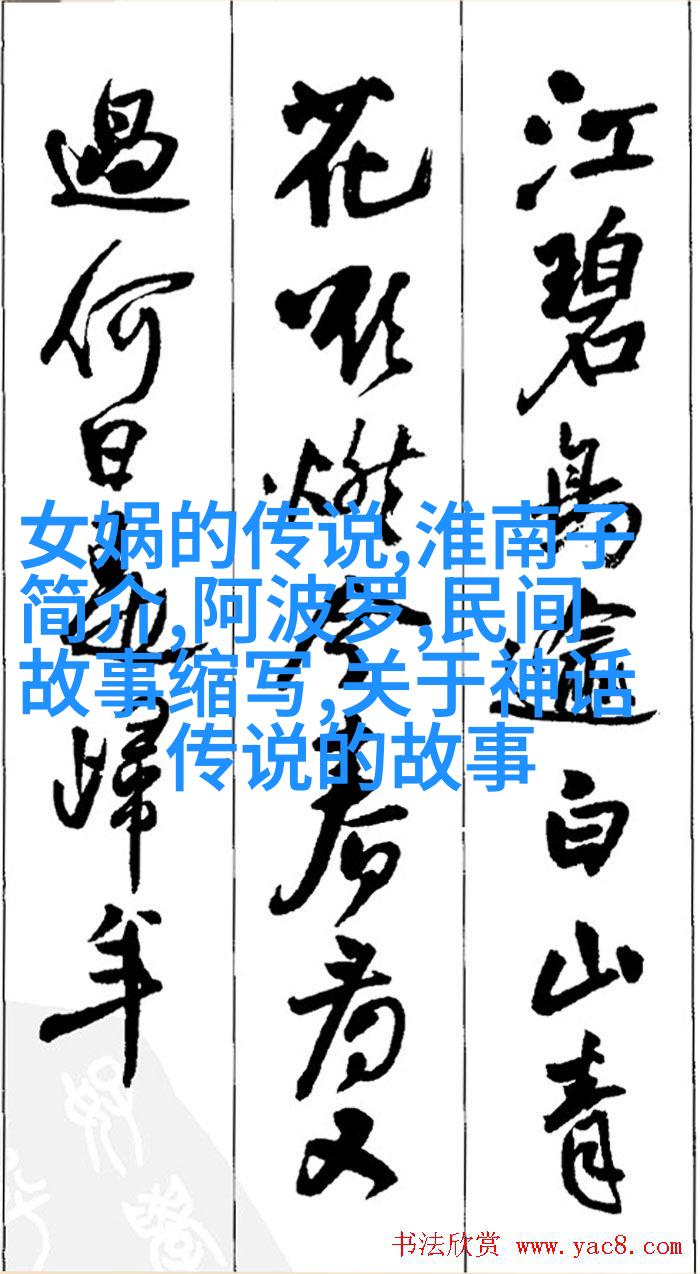 江碧鳥逾白山青
花欲燃今春看又
過何日是歸年
女娲的传说,淮南子
简介,阿波罗,民间
故事缩写,关于神话
传说的故事
书法欣赏 www.yac8.com